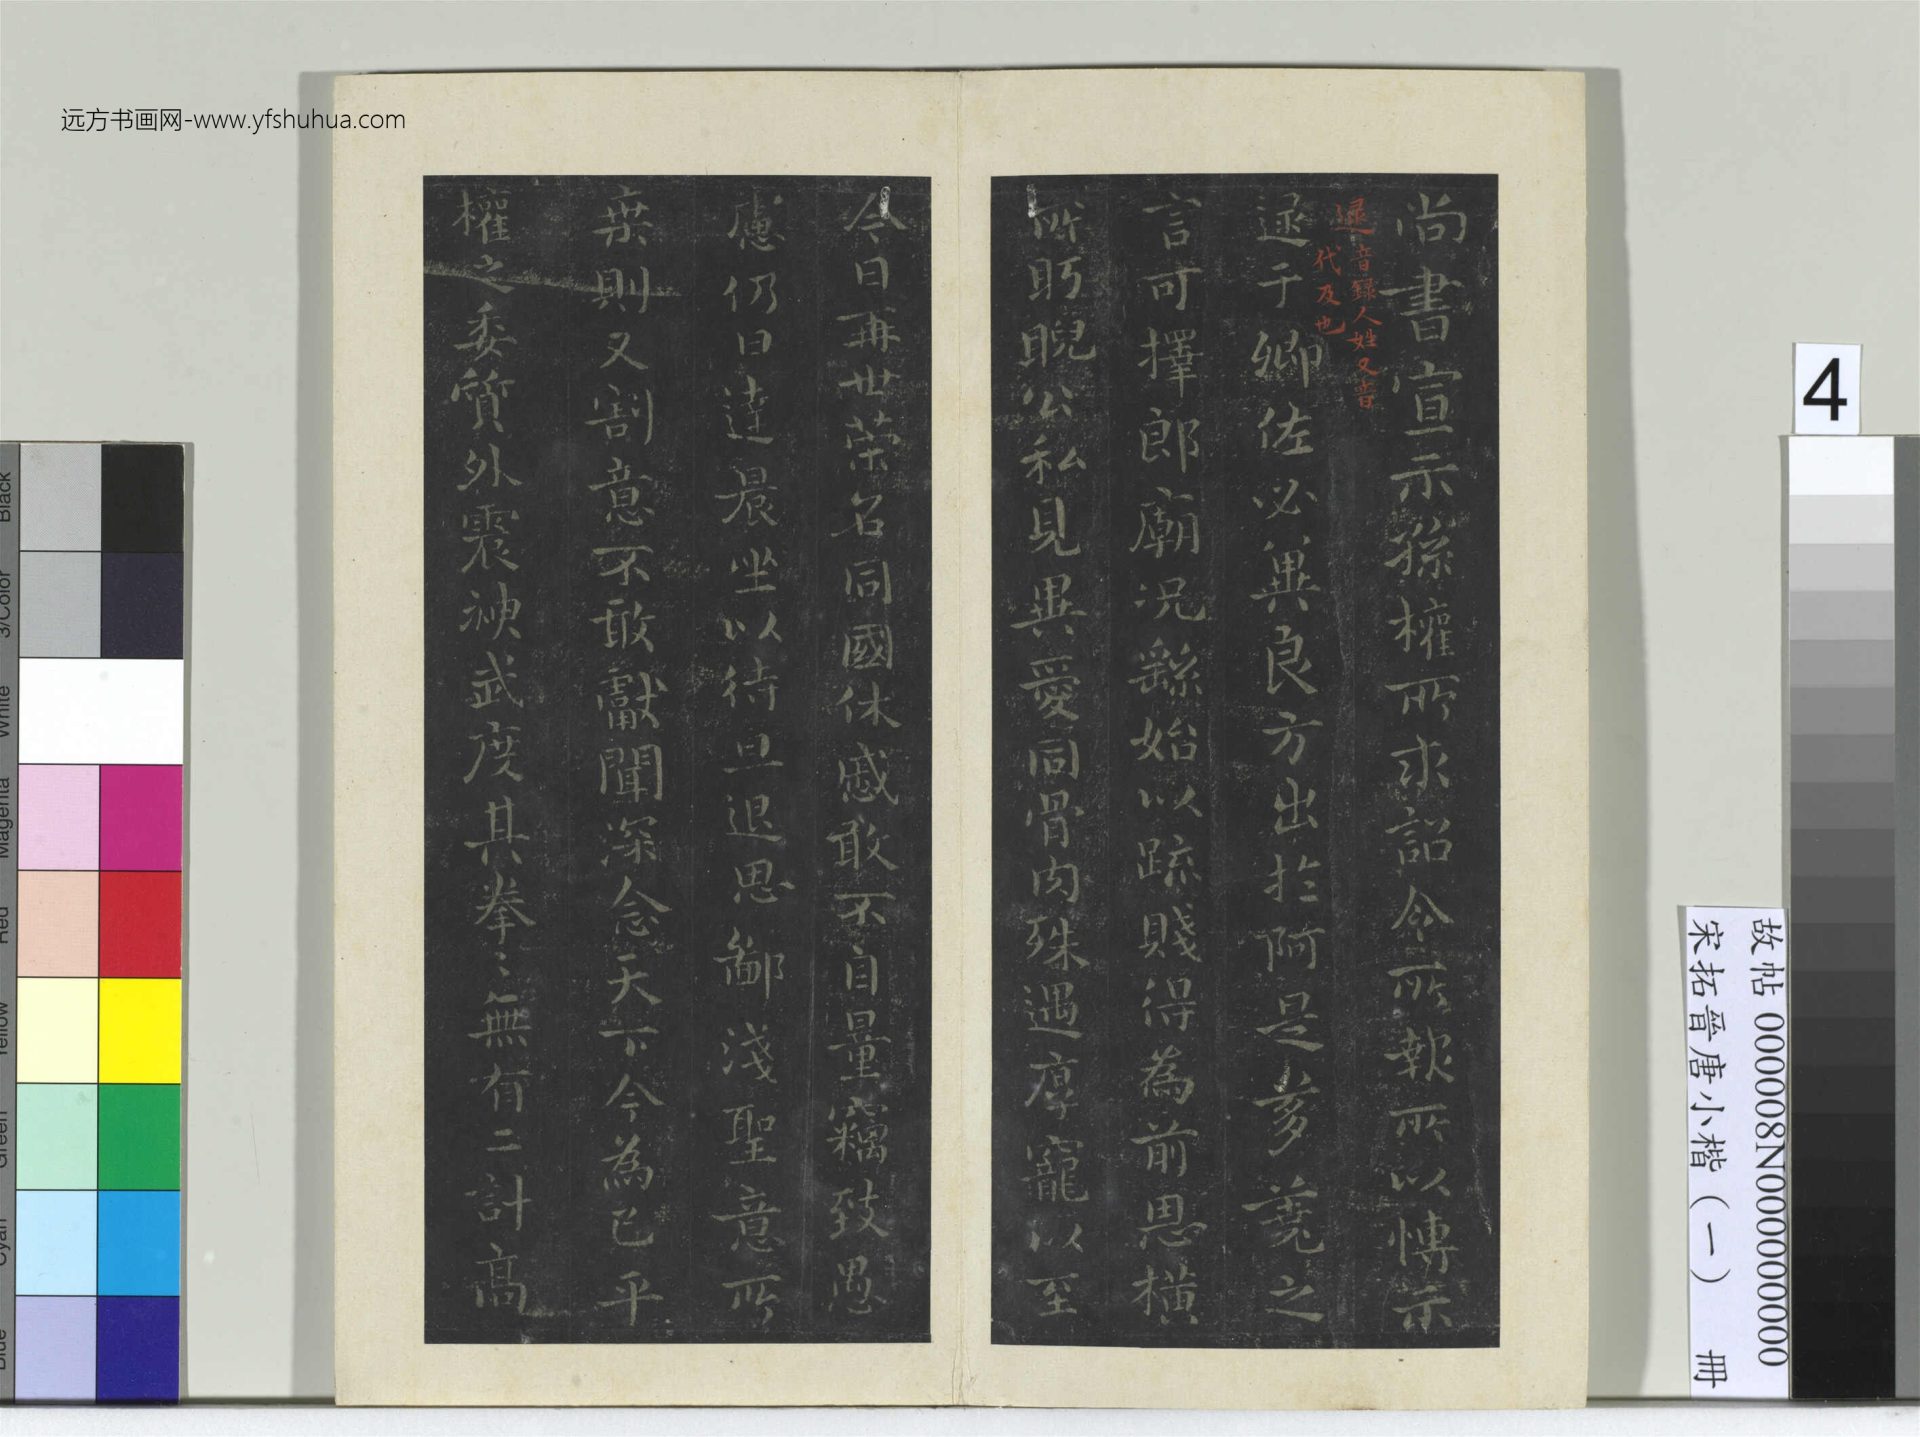 远方书画网-www.yfshuhua.com
尚書宣示孫權所求詔令所報所以博示
逯于卿佐必冀良方出於阿是芻蕘之
言可擇郎廟況繇始以疏賤得為前恩橫
所眄睨公私見異愛同骨肉殊遇厚寵以至
逯音録人姓又音
代及也
今日再世榮名同國休慼敢不自量竊致愚
慮仍日達晨坐以待旦退思鄙淺聖意所
棄則又割意不敢獻聞深念天下今為已平
權之委質外震神武度其拳〻無有二計高
4
故帖 000008N000000000
宋拓晋唐小楷（一） 冊
Black
3/Color
White
Magenta
Red
Yellow
Green
Cyan
Blue